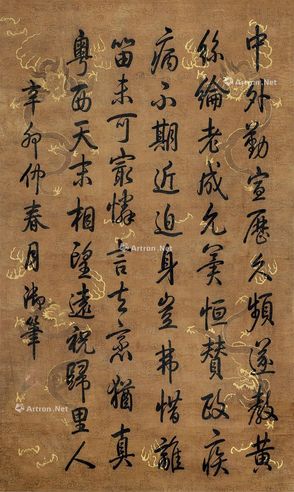 中外勤宣歷久頻遂教黃
絲綸老成允冀恒贊政疾
病不期近迫身豈弗惜離
留未可最憐言去意猶真
粵西天末相望遠祝歸里人
辛卯仲春月御筆
Artron.Net
Artron.Net
Artron.Net
Artron.Net